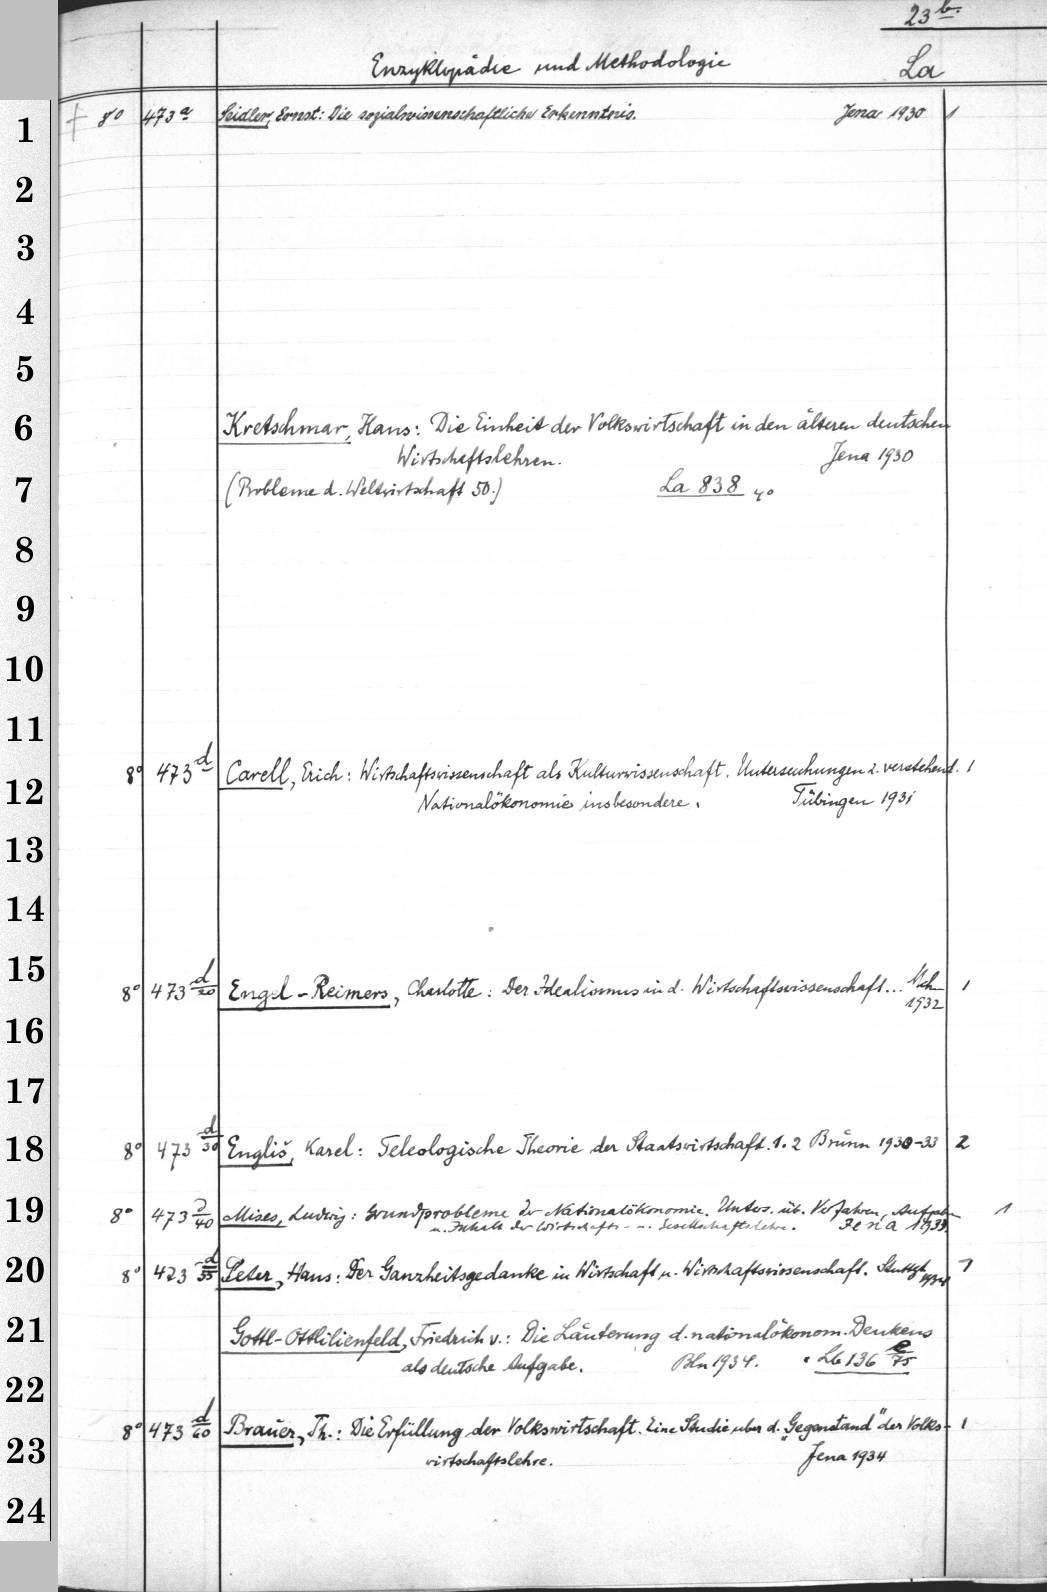 23 b.
Enzyklopädie und Methodologie La
1 † 8° 473 a Seidler, Ernst: Die sozialwissenschaftliche Erkenntnis. Jena 1930 1
2
3
4
5
6 Kretschmar, Hans: Die Einheit der Volkswirtschaft in den älteren deutschen
Wirtschaftslehren. Jena 1930
7 (Probleme d. Weltwirtschaft 50.) La 838 4°
8
9
10
11
8° 473 d Carell, Erich: Wirtschaftswissenschaft als Kulturwissenschaft. Untersuchungen z. verstehend. 1
12 Nationalökonomie insbesondere. Tübingen 1931
13
14
15 8° 473 d/20 Engel-Reimers, Charlotte: Der Idealismus in d. Wirtschaftswissenschaft... Mch 1
1932
16
17
18 8° 473 d/30 Engliš, Karel: Teleologische Theorie der Staatswirtschaft. 1. 2 Brünn 1930-33 2
19 8° 473 d/40 Mises, Ludwig: Grundprobleme der Nationalökonomie. Unters. üb. Verfahren, Aufgaben 1
u. Inhalt der Wirtschafts- u. Gesellschaftslehre. Jena 1933.
20 8° 473 d/55 Peter, Hans: Der Ganzheitsgedanke in Wirtschaft u. Wirtschaftswissenschaft. Stuttgt 1934 1
21 Gottl-Ottlilienfeld, Friedrich v.: Die Läuterung d. nationalökonom. Denkens
als deutsche Aufgabe. Bln 1934. Lb 136 e/75
22
8° 473 d/60 Brauer, Th.: Die Erfüllung der Volkswirtschaft. Eine Studie über d. "Gegenstand" der Volks- 1
23 wirtschaftslehre. Jena 1934
24